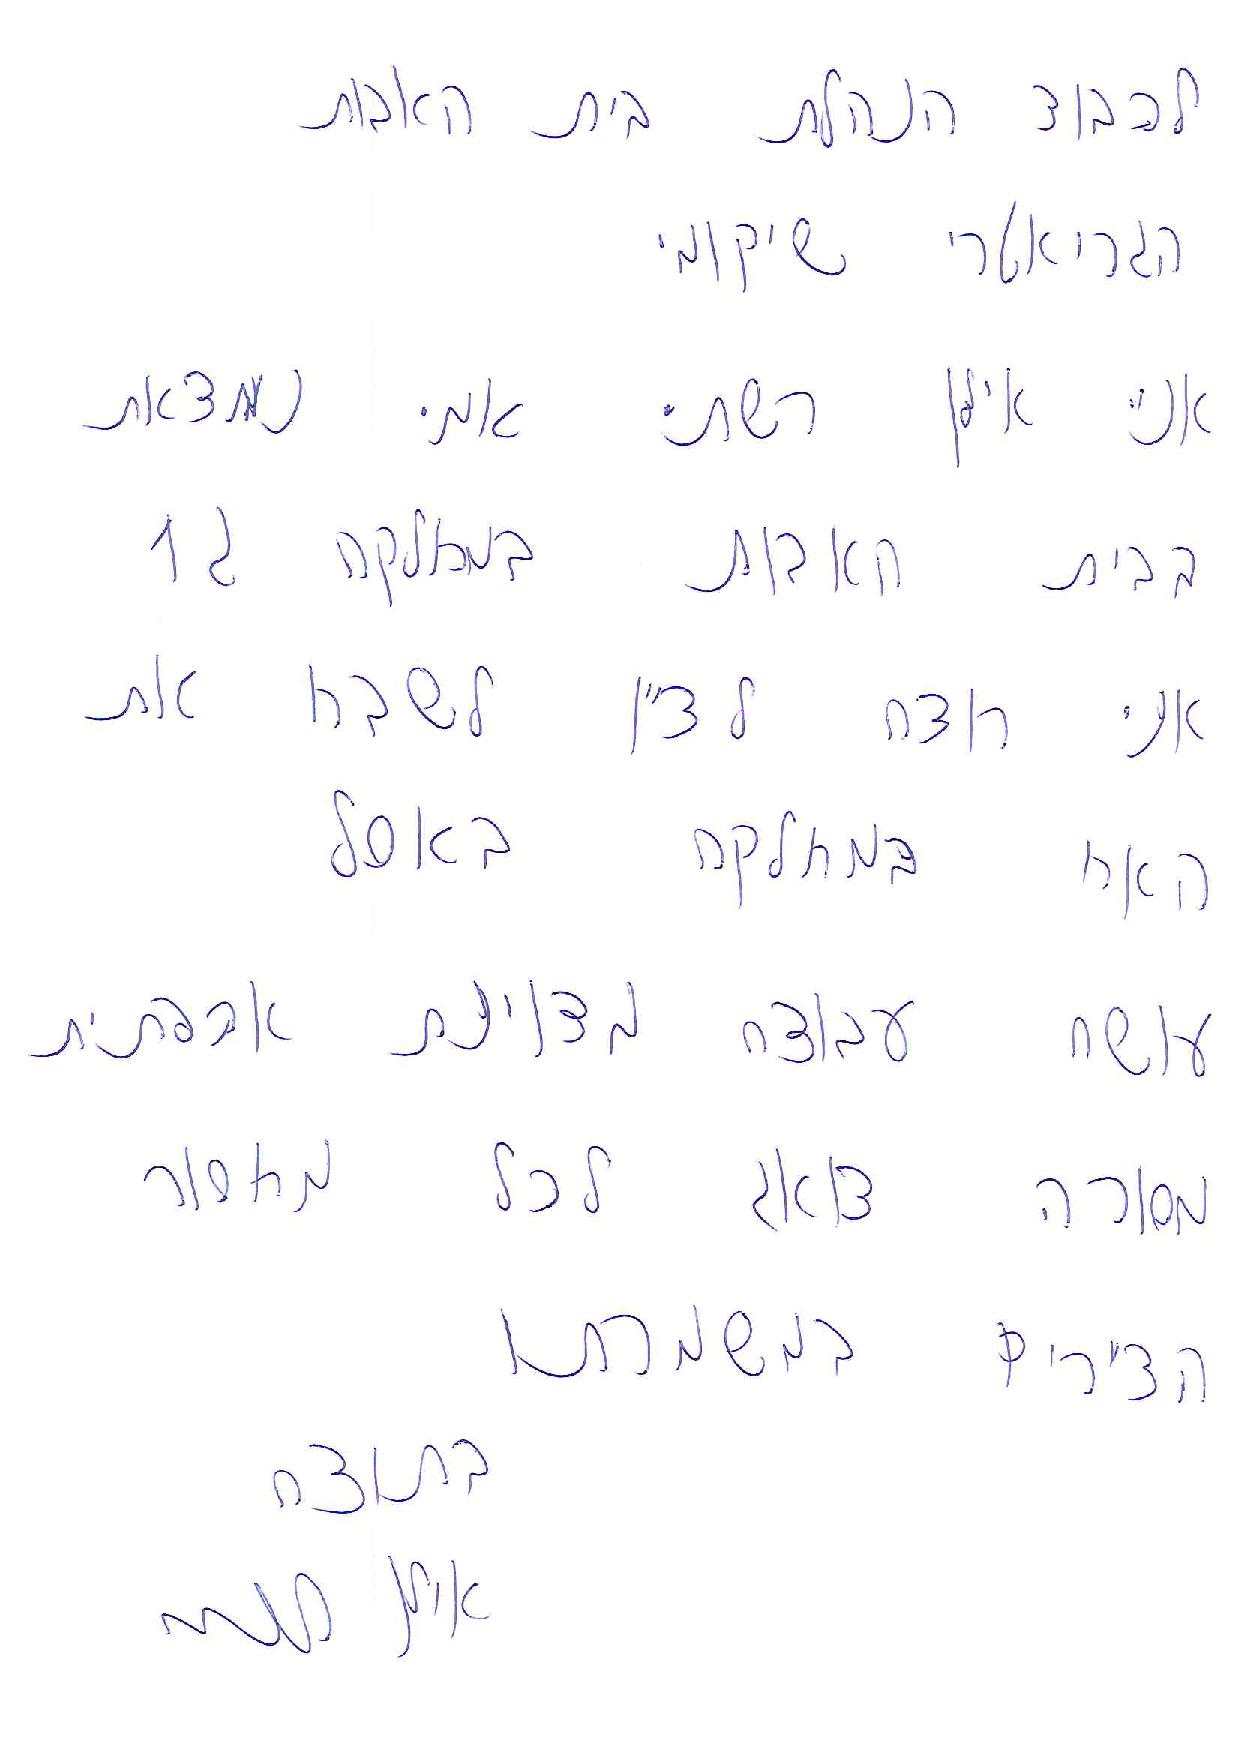 לכבוד הנהלת בית האבות
הגריאטרי שיקומי
אני אילן רשתי אמי נמצאת
בבית האבות במחלקה ג 1
אני רוצה לציין לשבח את
האח במחלקה באסל
עושה עבודה מצוינת אכפתית
מסורה דואג לכל מחסור
הדיירים במשמרתו
בתודה
אילן